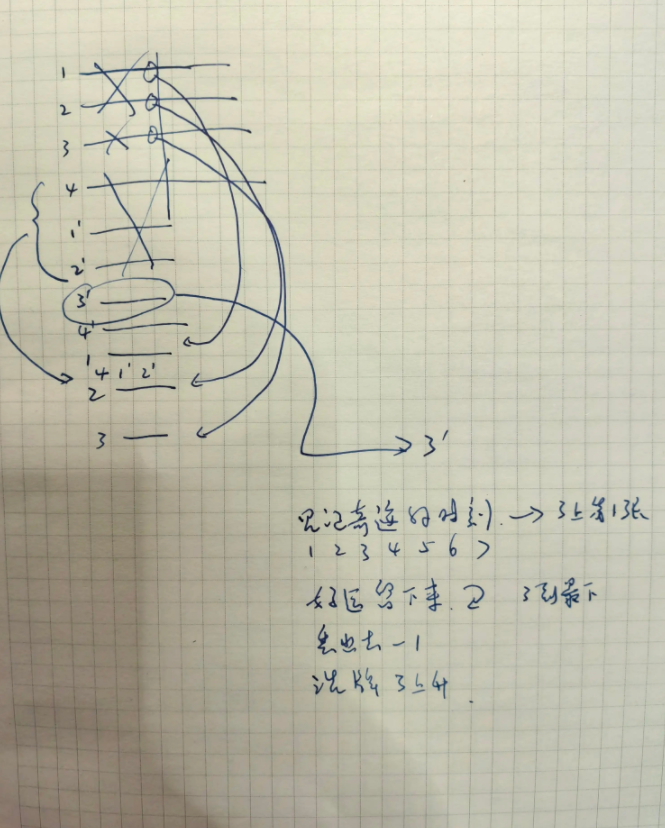 1
2
3
4
1'
2'
3'
4'
1
4 1' 2'
2
3
3'
见证奇迹的时刻 → 3上第1张
1 2 3 4 5 6 7
好运留下来 2 3到最下
丢出去-1
洗牌 3上4